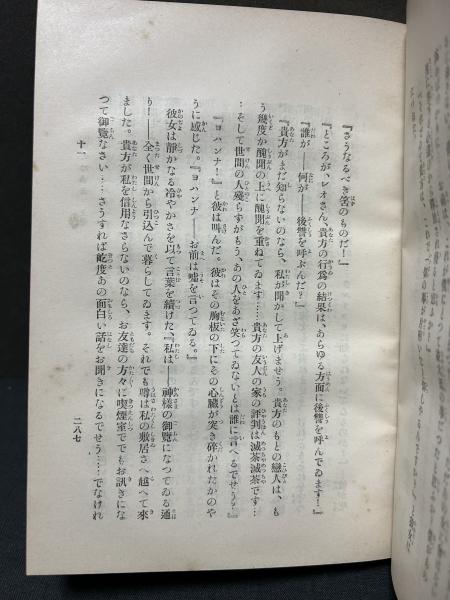 『さうなるべき筈のものだ！』
『ところが、レオさん、貴方の行爲の結果は、あらゆる方面に後響を呼んでゐます！』
『誰が――何が――後響を呼ぶんだ？』
『貴方がまだ知らないのなら、私が聞かして上げませう。貴方のもとの戀人は、も
う幾度か醜聞の上に醜聞を重ねてゐます……貴方の友人の家の評判は滅茶滅茶です…
…そして世間の人殘らずがもう、あの人をあざ笑つてゐないとは誰に言へるでせう？』
『ヨハンナ！』と彼は叫んだ。彼はその胸板の下にその心臟が突き碎かれたかのや
うに感じた。『ヨハンナ――お前は嘘を言つてゐる。』
彼女は靜かなる冷やかさを以て言葉を續けた、『私は――神樣の御覽になつてゐる通
り！――全く世間から引込んで暮らしてゐます。それでも噂は私の敷居さへ越へて來
ました。貴方が私を信用なさらないのなら、お友達の方々に喫煙室ででもお訊きにな
つて御覽なさい……さうすれば屹度あの面白い話をお聞きになるでせう……でなけれ
十一
二八七